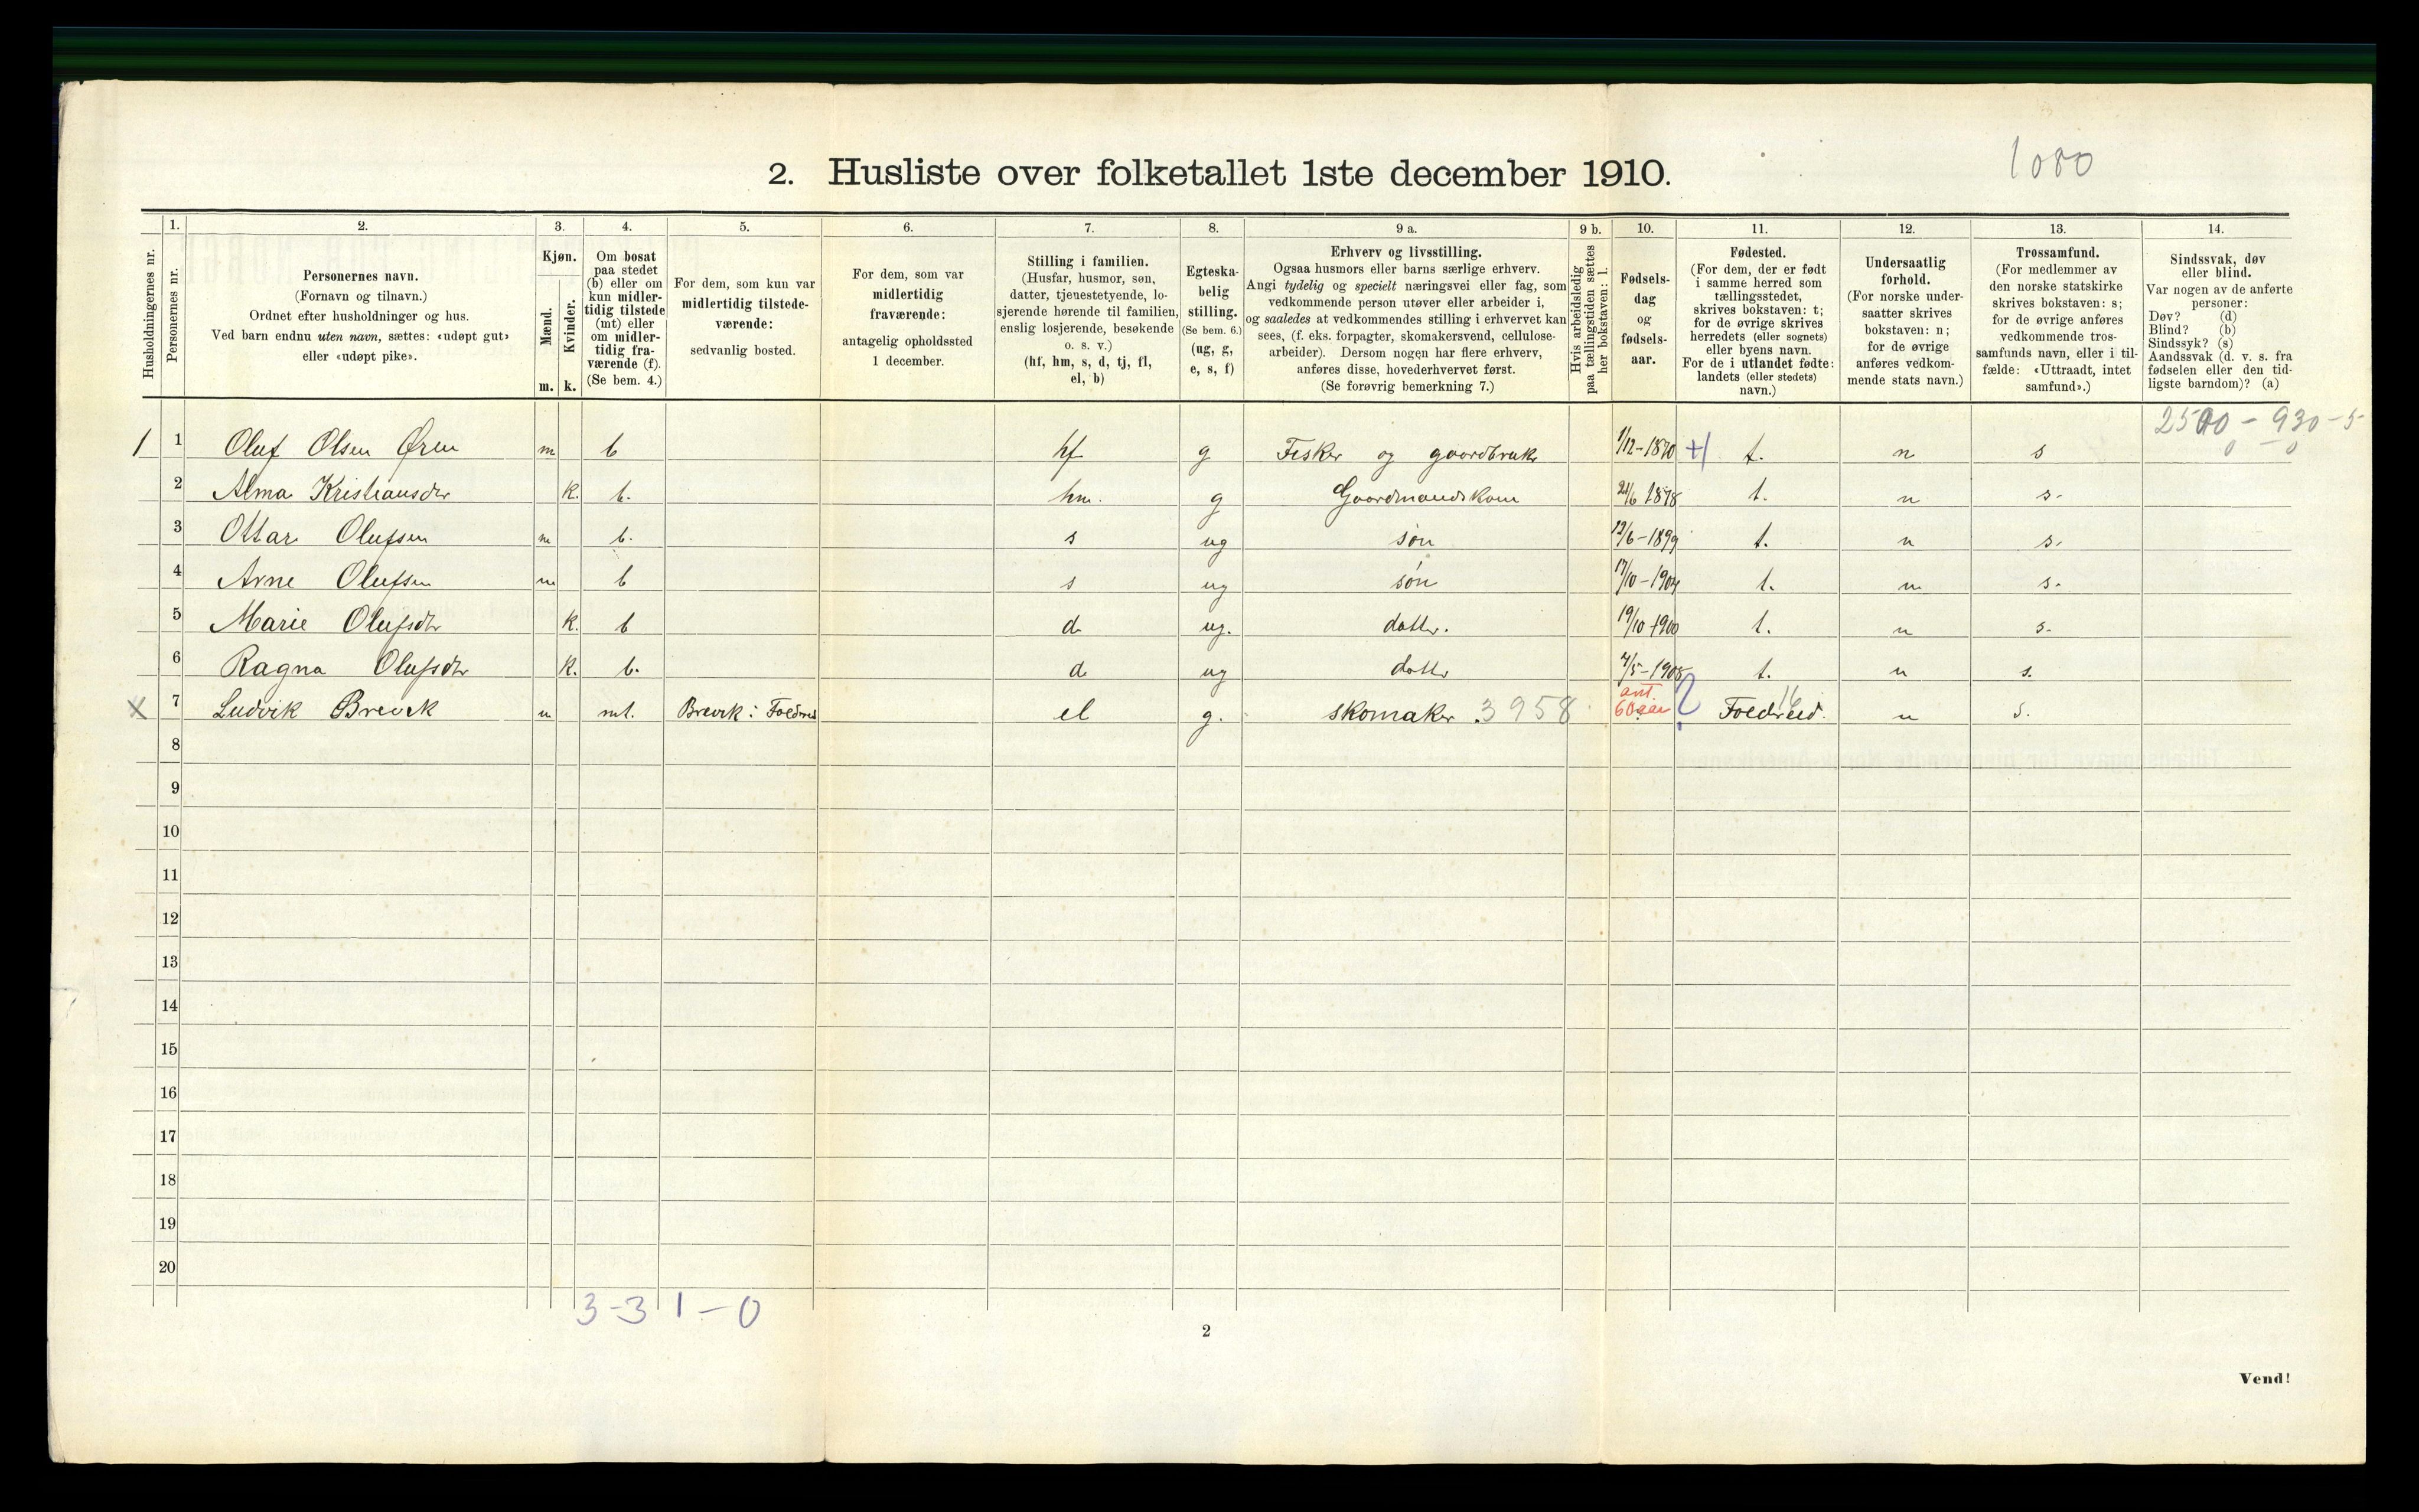 1080
2. Husliste over folketallet 1ste december 1910.
1. 2. 3. 4. 5. 6. 7. 8. 9 a. 9 b. 10. 11. 12. 13. 14.
Husholdningernes nr.
Personernes nr.
Personernes navn.
(Fornavn og tilnavn.)
Ordnet efter husholdninger og hus.
Ved barn endnu uten navn, sættes: «udøpt gut»
eller «udøpt pike».
Kjøn.
Mænd.
Kvinder.
m. k.
Om bosat
paa stedet
(b) eller om
kun midler-
tidig tilstede
(mt) eller
om midler-
tidig fra-
værende (f).
(Se bem. 4.)
For dem, som kun var
midlertidig tilstede-
værende:
sedvanlig bosted.
For dem, som var
midlertidig
fraværende:
antagelig opholdssted
1 december.
Stilling i familien.
(Husfar, husmor, søn,
datter, tjenestetyende, lo-
sjerende hørende til familien,
enslig losjerende, besøkende
o. s. v.)
(hf, hm, s, d, tj, fl,
el, b)
Egteska-
belig
stilling.
(Se bem. 6.)
(ug, g,
e, s, f)
Erhverv og livsstilling.
Ogsaa husmors eller barns særlige erhverv.
Angi tydelig og specielt næringsvei eller fag, som
vedkommende person utøver eller arbeider i,
og saaledes at vedkommendes stilling i erhvervet kan
sees, (f. eks. forpagter, skomakersvend, cellulose-
arbeider). Dersom nogen har flere erhverv,
anføres disse, hovederhvervet først.
(Se forøvrig bemerkning 7.)
Hvis arbeidsledig
paa tællingstiden sættes
her bokstaven: l.
Fødsels-
dag
og
fødsels-
aar.
Fødested.
(For dem, der er født
i samme herred som
tællingsstedet,
skrives bokstaven: t;
for de øvrige skrives
herredets (eller sognets)
eller byens navn.
For de i utlandet fødte:
landets (eller stedets)
navn.)
Undersaatlig
forhold.
(For norske under-
saatter skrives
bokstaven: n;
for de øvrige
anføres vedkom-
mende stats navn.)
Trossamfund.
(For medlemmer av
den norske statskirke
skrives bokstaven: s;
for de øvrige anføres
vedkommende tros-
samfunds navn, eller i til-
fælde: «Uttraadt, intet
samfund».)
Sindssvak, døv
eller blind.
Var nogen av de anførte
personer:
Døv? (d)
Blind? (b)
Sindssyk? (s)
Aandssvak (d. v. s. fra
fødselen eller den tid-
ligste barndom)? (a)
2500 - 930 - 5
0 0
1 1 Oluf Olsen Øren m b hf g Fisker og gaardbruker 1/12-1870 t. n s
2 Alma Kristiansdtr k. b. hm. g Gaardmandskone 21/6 1878 t. n s.
3 Ottar Olufsen m b. s ug søn 12/6-1899 t. n s.
4 Arne Olufsen m b s ug søn 17/10-1904 t. n s.
5 Marie Olufsdtr k. b d ug. datter. 19/10-1900 t. n s.
6 Ragna Olufsdtr k. b. d ug datter 4/5-1908 t. n s.
X 7 Ludvik Brevik m mt. Brevik i Foldereid el g. skomaker 3958 ant. 60 aar ? Foldereid. 16 n s.
8
9
10
11
12
13
14
15
16
17
18
19
20
3-3 1-0
2
Vend!